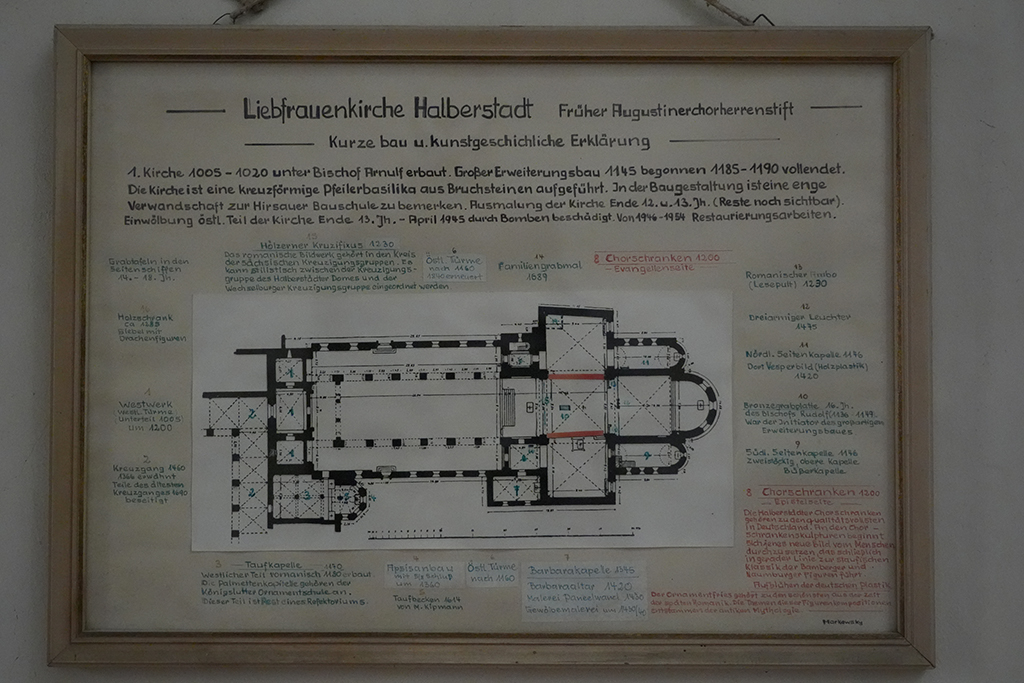 Liebfrauenkirche Halberstadt Früher Augustinerchorherrenstift
Kurze bau u. kunstgeschichliche Erklärung
1. Kirche 1005 - 1020 unter Bischof Arnulf erbaut. Großer Erweiterungsbau 1145 begonnen 1185-1190 vollendet.
Die Kirche ist eine kreuzförmige Pfeilerbasilika aus Bruchsteinen aufgeführt. In der Baugestaltung ist eine enge
Verwandschaft zur Hirsauer Bauschule zu bemerken. Ausmalung der Kirche Ende 12. u. 13. Jh. (Reste noch sichtbar).
Einwölbung östl. Teil der Kirche Ende 13. Jh. - April 1945 durch Bomben beschädigt. Von 1946-1954 Restaurierungsarbeiten.
Grabtafeln in den
Seitenschiffen
14. - 18. Jh.
Holzschrank
ca. 1285
Giebel mit
Drachenfiguren
1
Westwerk
Unterteil 1005
um 1200
2
Kreuzgang 1460
1366 erwähnt
Teile des ältesten
Kreuzganges 1640
beseitigt
Hölzerner Kruzifixus 1230
Das romanische Bildwerk gehört in den Kreis
der sächsischen Kreuzigungsgruppen. Es
kann stilistisch zwischen der Kreuzigungs-
gruppe des Halberstädter Domes und der
Wechselburger Kreuzigungsgruppe eingeordnet werden.
6
Östl. Türme
nach 1160
14
Familiengrabmal
1689
8 Chorschranken 1200
- Evangelienseite
13
Romanischer
(Lesepult) 1230
12
Dreiarmiger Leuchter
1475
11
Nördl. Seitenkapelle 1146
Dort Vesperbild (Holzplastik)
1420
10
Bronzegrabplatte 16. Jh.
des Bischofs Rudolf
War der Initiator des großartigen
Erweiterungsbaues
9
Süd. Seitenkapelle 1146
zweistöckig obere Kapelle
Büßerkapelle
8 Chorschranken 1200
- Epistelseite
Die Halberstädter Chorschranken
gehören zu den qualitätsvollsten
in Deutschland. An den Chor-
schrankenskulpturen beginnt
sich jenes neue Bild vom Menschen
durchzusetzen, das schließlich
in gerader Linie zur staufischen
Klassik der Bamberger und
Naumburger Figuren führt
der deutschen Plastik
3 Taufkapelle
Westlicher Teil romanisch 1180 erbaut.
Die Palmettenkapitelle gehören der
Königslutter Ornamentschule an.
Dieser Teil ist Rest eines Refektoriums.
4
Apsisanbau
um 1350
Taufbecken 1614
von M. Kipmann
6
Östl. Türme
nach 1160
7
Barbarakapelle
Barbaraaltar 1420
Malerei
Gewölbemalerei
Markowsky